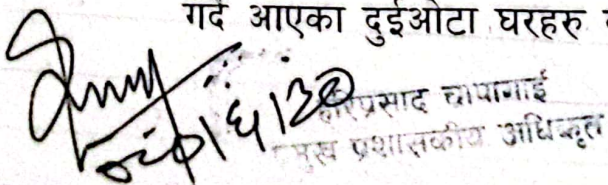 गर्दै आएका दुईओटा घरहरु
हरिप्रसाद चापागाई
प्रमुख प्रशासकीय अधिकृत